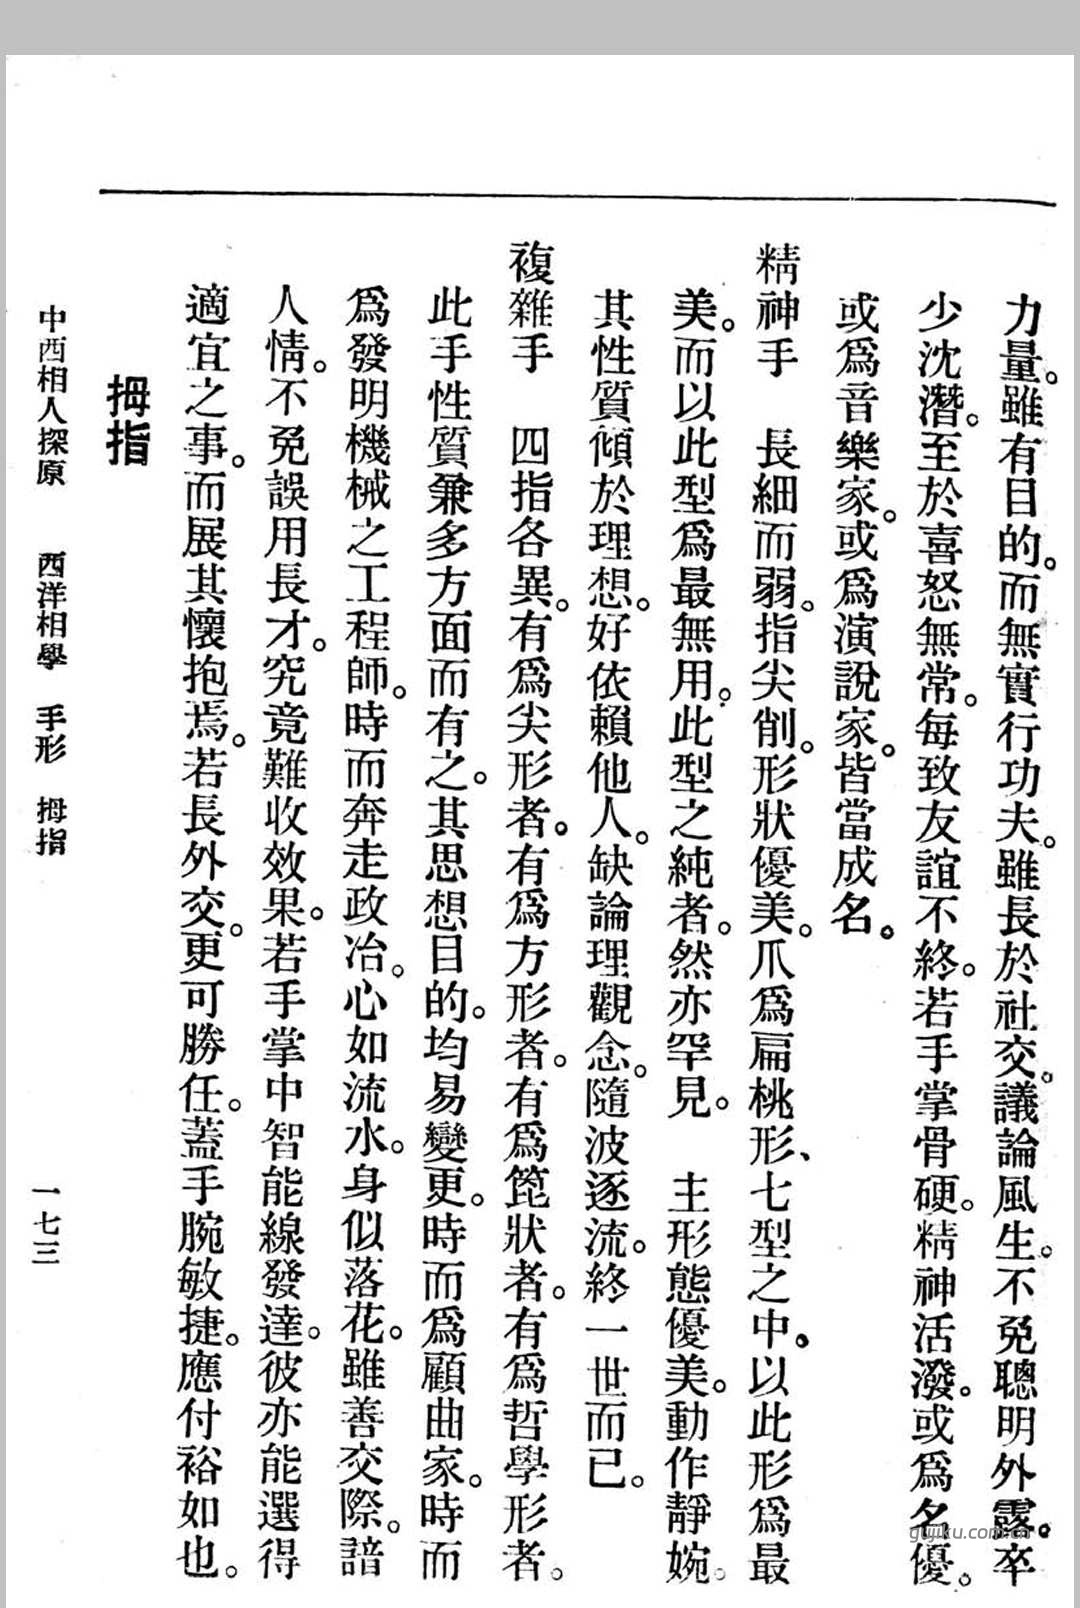 力量。雖有目的。而無實行功夫。雖長於社交。議論風生。不免聰明外露。卒
少沈潛。至於喜怒無常。每致友誼不終。若手掌骨硬。精神活潑。或爲名優。
或爲音樂家。或爲演說家。皆當成名。
精神手　長細而弱。指尖削。形狀優美。爪爲扁桃形、七型之中。以此形爲最
美。而以此型爲最無用。此型之純者。然亦罕見。　主形態優美。動作靜婉。
其性質傾於理想。好依賴他人。缺論理觀念。隨波逐流。終一世而已。
複雜手　四指各異。有爲尖形者。有爲方形者。有爲箆狀者。有爲哲學形者。
此手性質兼多方面而有之。其思想目的。均易變更。時而爲顧曲家。時而
爲發明機械之工程師。時而奔走政治。心如流水。身似落花。雖善交際。諳
人情。不免誤用長才。究竟難收效果。若手掌中智能線發達。彼亦能選得
適宜之事。而展其懷抱焉。若長外交。更可勝任。蓋手腕敏捷。應付裕如也。
拇指
中西相人探原　西洋相學　手形　拇指
一七三
gujiku.com.cn